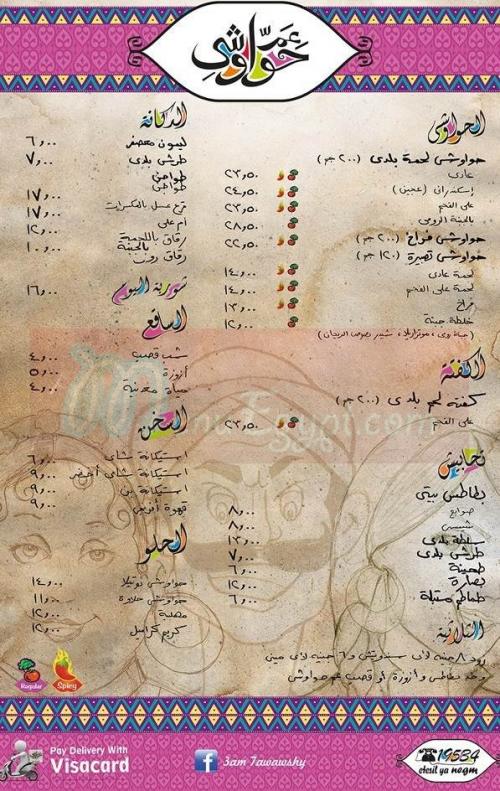 عم حواوشى
الحواوشى
حواوشى لحمة بلدى (٢٠٠ جم)
عادى ٢٣,٥٠
إسكندرانى (عجين) ٢٤,٥٠
على الفحم ٢٣,٥٠
بالجبنة الرومى ٢٨,٥٠
حواوشى فراخ (٢٠٠ جم) ٢٢,٥٠
حواوشى قصيرة (١٢٠ جم)
لحمة عادى ١٤,٠٠
لحمة على الفحم ١٤,٠٠
فراخ ١٣,٠٠
خلطة جبنة ١٢,٠٠
الكفتة
كفتة لحم بلدى (٢٠٠ جم)
على الفحم ٢٣,٥٠
تحابيش
بطاطس بيتى
صوابع ٨,٠٠
شيبسى ٨,٠٠
سلطة بلدى ١٣,٠٠
طرشى بلدى ٧,٠٠
طحينة ٦,٠٠
بصارة ١٢,٠٠
طماطم متبلة ٦,٠٠
الثلاثية
زود ٨ جنيه لأى سندويتش و ٦ جنيه لأى مينى
وخد بطاطس و أزوزة أو قصب عم حواوشى
الدكانة
ليمون معصفر ٦,٠٠
طرشى بلدى ٧,٠٠
طواجن
طواجن
قرع عسل بالمكسرات ١٧,٠٠
أم على ١٧,٠٠
رقاق باللحمة ١٢,٠٠
رقاق بالجبنة ١٠,٠٠
شوربة اليوم ١٦,٠٠
الساقع
شب قصب ٤,٠٠
أزوزة ٥,٠٠
مياة معدنية ٤,٠٠
السخن
استيكانة شاى ٦,٠٠
استيكانة شاى أخضر ٩,٠٠
استيكانة بن ٩,٠٠
قهوة أفرنجى ٩,٠٠
الحلو
حواوشى نوتيلا ١٤,٠٠
حواوشى حلاوة ١١,٠٠
مهلبية ١٢,٠٠
كريم كراميل ١٢,٠٠
Regular
Spicy
MenuEgypt.com
Pay Delivery With
Visacard
3am 7awawshy
19534
etesil ya negm